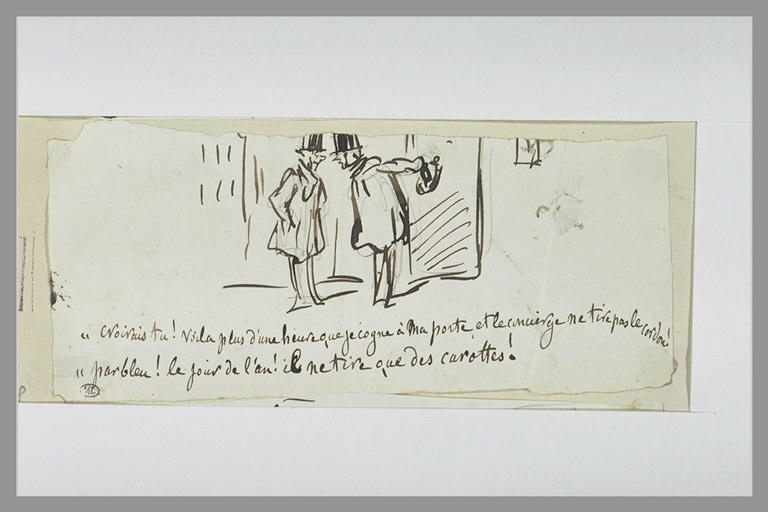 " Croirais tu ! voila plus d'une heure que je cogne à ma porte et le concierge ne tire pas le cordon !
" parbleu ! le jour de l'an ! il ne tire que des carottes !